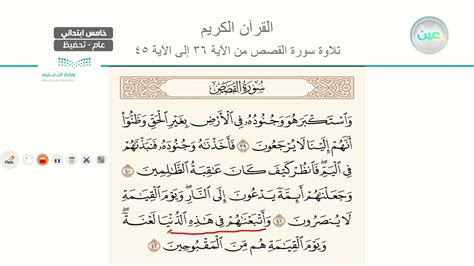 القرآن الكريم
تلاوة سورة القصص من الآية ٣٦ إلى الآية ٤٥
خامس ابتدائي
عام - تحفيظ
وزارة التعليم
عين
سُورَةُ القَصَصِ
وَٱسۡتَكۡبَرَ هُوَ وَجُنُودُهُۥ فِي ٱلۡأَرۡضِ بِغَيۡرِ ٱلۡحَقِّ وَظَنُّوٓاْ
أَنَّهُمۡ إِلَيۡنَا لَا يُرۡجَعُونَ ٣٩ فَأَخَذۡنَٰهُ وَجُنُودَهُۥ فَنَبَذۡنَٰهُمۡ
فِي ٱلۡيَمِّۖ فَٱنظُرۡ كَيۡفَ كَانَ عَٰقِبَةُ ٱلظَّٰلِمِينَ ٤٠
وَجَعَلۡنَٰهُمۡ أَئِمَّةٗ يَدۡعُونَ إِلَى ٱلنَّارِۖ وَيَوۡمَ ٱلۡقِيَٰمَةِ
لَا يُنصَرُونَ ٤١ وَأَتۡبَعۡنَٰهُمۡ فِي هَٰذِهِ ٱلدُّنۡيَا لَعۡنَةٗۖ
وَيَوۡمَ ٱلۡقِيَٰمَةِ هُم مِّنَ ٱلۡمَقۡبُوحِينَ ٤٢